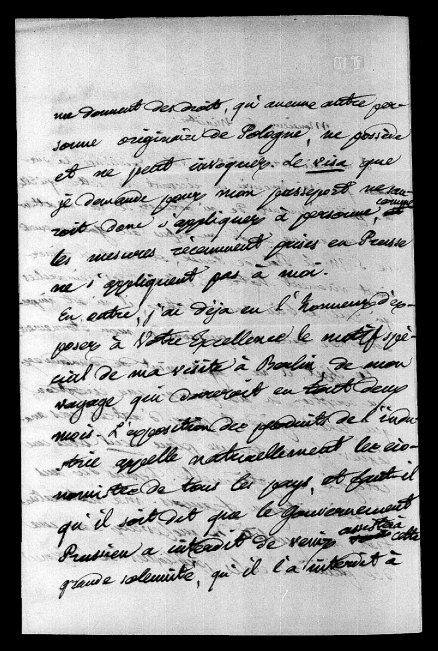 me donnent des droits, qu'aucune autre per-
sonne originaire de Pologne, ne possède
et ne peut invoquer. Le visa que
je demande pour mon passeport ne sau-
roit donc s'appliquer à personne, comme
les mesures récemment prises en Prusse
ne s'appliquent pas à moi.
En outre, j'ai déja eu l'honneur d'ex-
poser à Votre Excellence le motif spé-
cial de ma visite à Berlin, de mon
voyage qui dureroit en tout deux
mois. L'exposition des produits de l'indu-
strie appelle naturellement les éco-
nomistes de tous les pays, et faut-il
qu'il soit dit que le Gouvernement
Prussien a interdit de venir assister à cette
grande solemnité, qu'il l'a interdit à